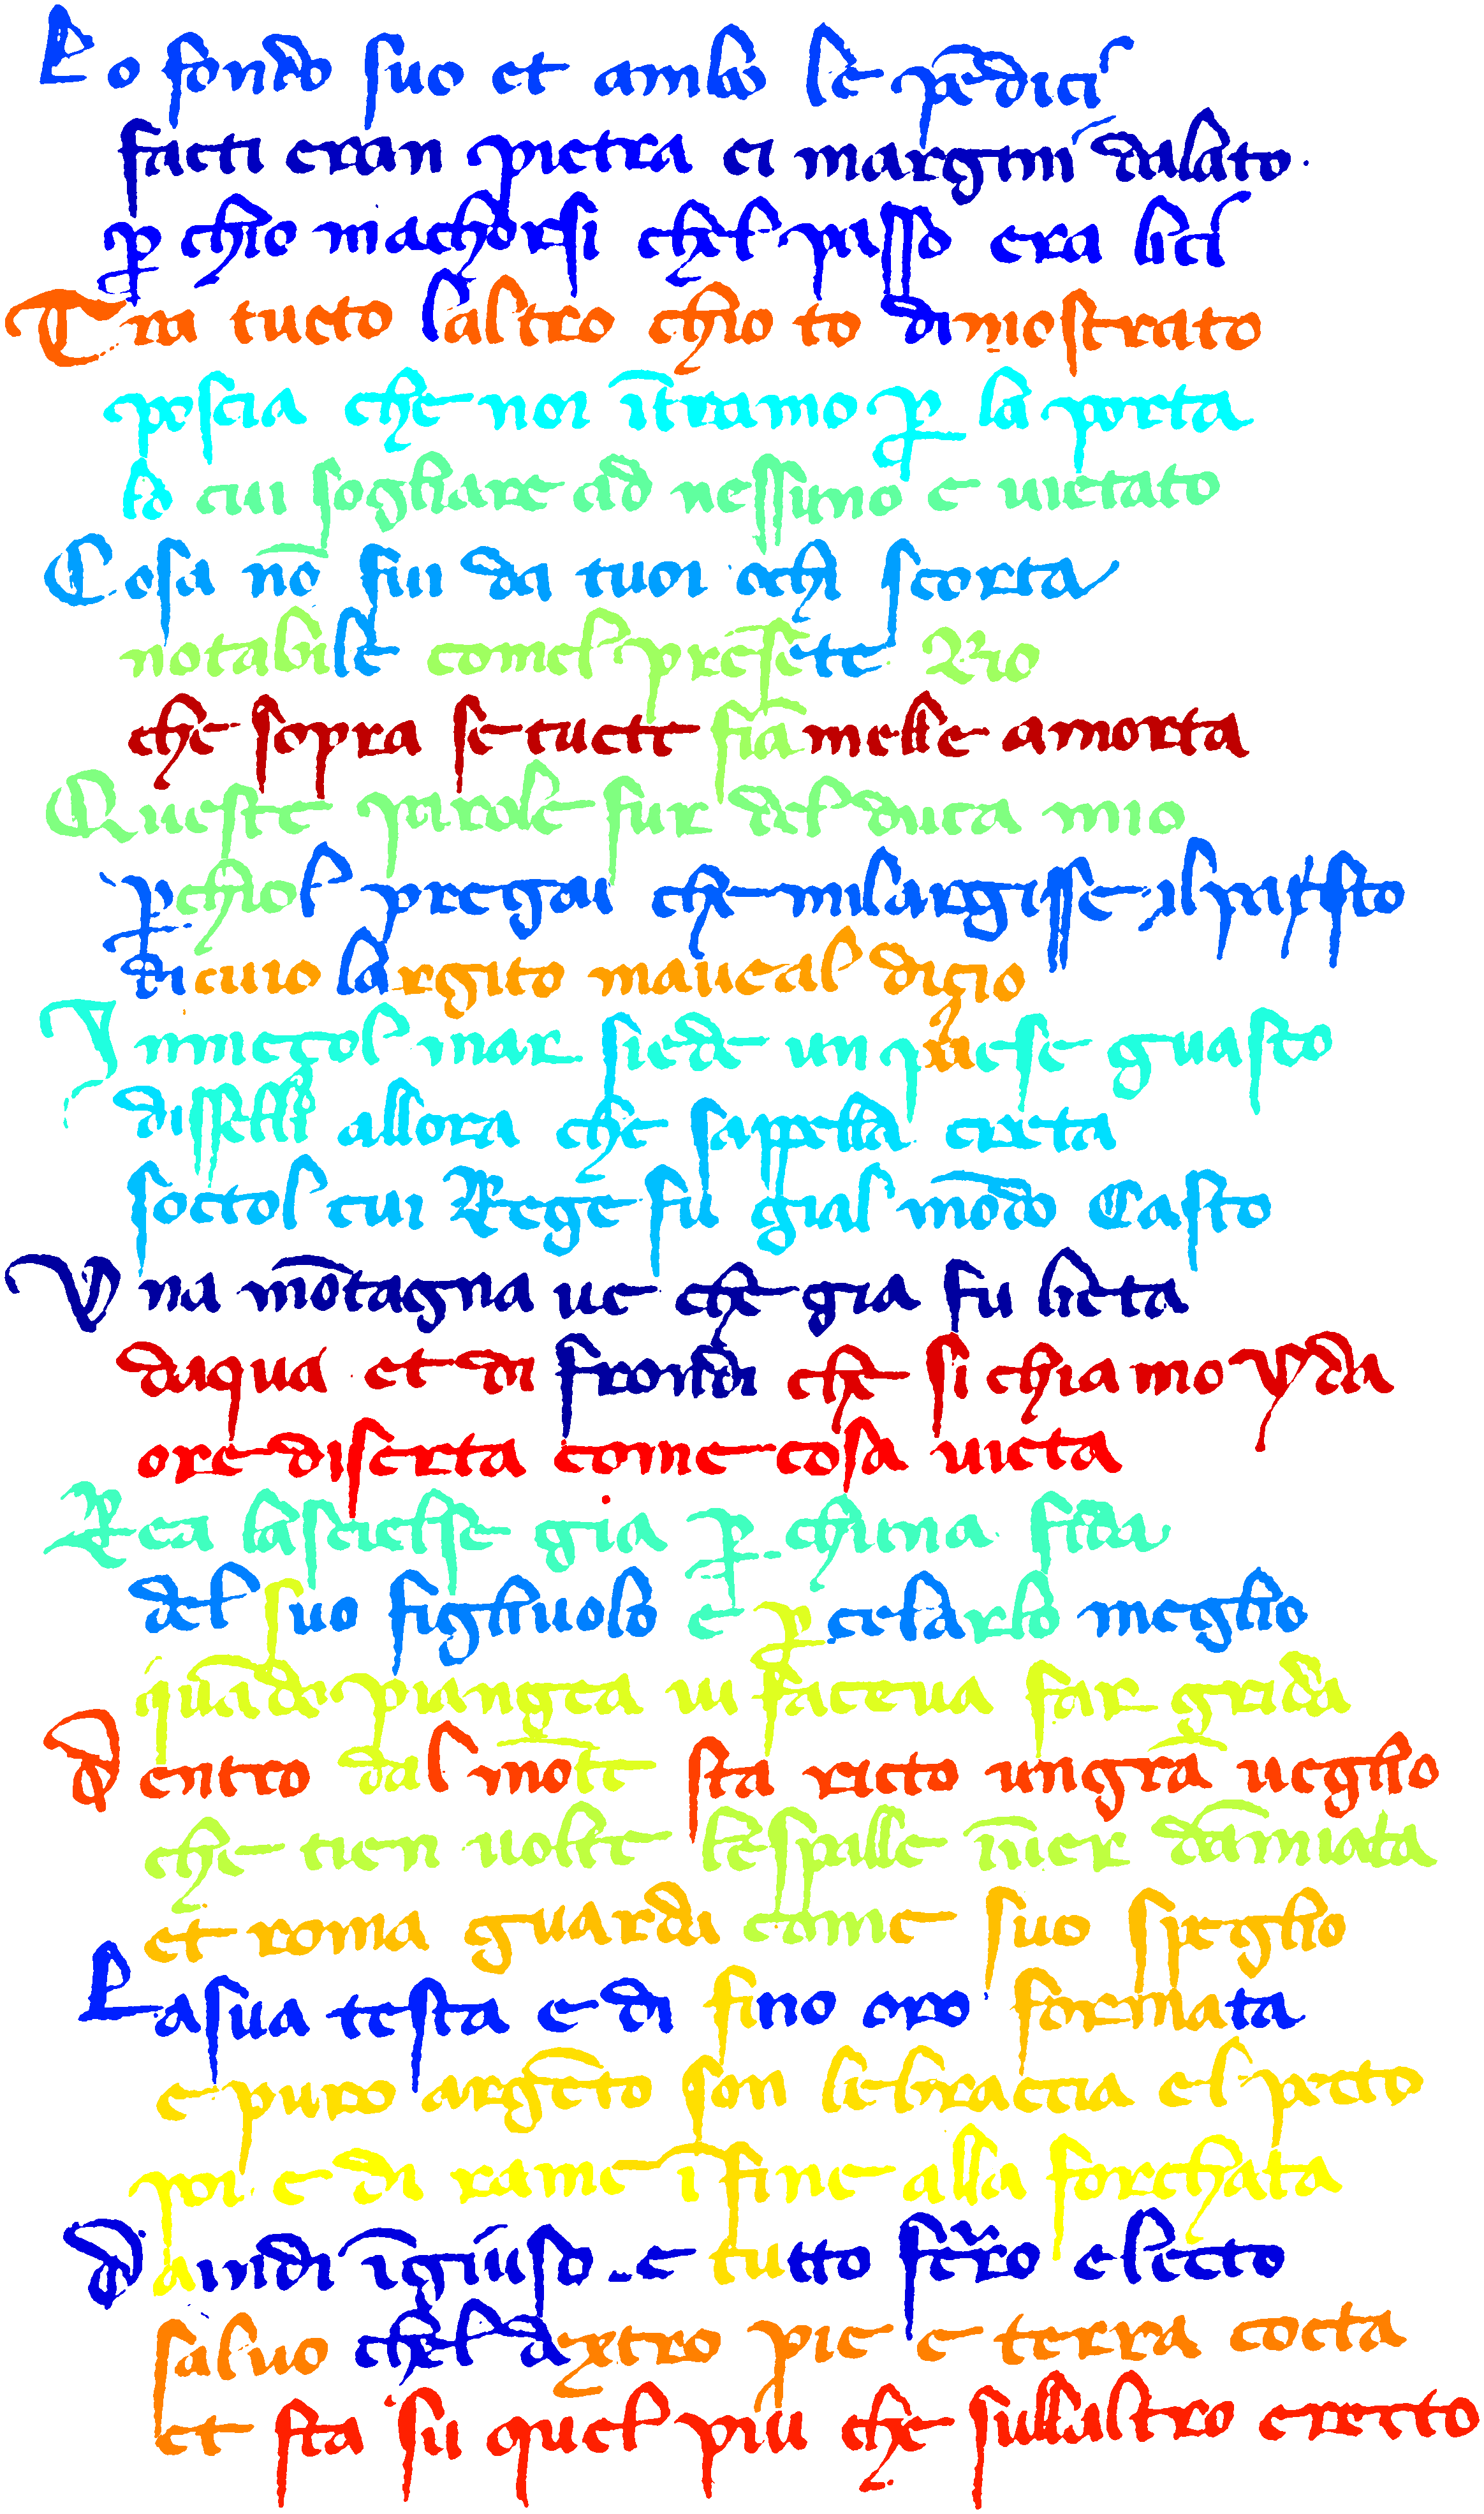 Lo fondo suo et ambo le pendici
facti eran pietra ei margini dallato.
p chio maccorsi chel passo era lici
Tra tucto laltro chio to dimostrato
poscia che noi ītramo p la porta
lo cui sogliare ad nessuno e uietato
Cosa nō fu da tuoi occhi scorta
notabile comel presēte rio
che sopra se tucte fiāmelle amorta
Queste parole fur del duca mio
p chiol pregai che milargisse il pasto
di cui largito maueal disio
In mezol mar siede un paese guasto
disselli allora che sappella creta
soctol cui rege fu gial mōdo casto
Vna mōtagna ue che gia fu lieta
daqua et di frondi che si chiamo yda
ore diserta come cosa uieta
Rea la scelse gia p cuna fida
del suo figliuolo e p celarlo meglio
quādo piangea ui facea far grida
Dentro dal mōte sta recto un grā ueglio
che tien uolte le spalle īuer dāmiata
et roma guarda come suo speglio
La sua testa e di fino oro formata
e puro argēto son le braccia el pecto
poi e di rame īfine alla forchata
Da indi īgiuso e tucto ferro electo
saluo chel dextro pie e terra cocta
et sta su quel piu che sullaltro erecto